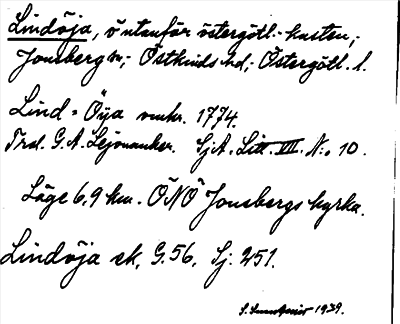 Lindöja, ö utanför östergötl. kusten,
Jonsberg sn, Östkinds hd, Östergötl. l.
Lind-Öija omkr. 1774.
G. A. Lejonanker. SjA. Litt. VII. N:o 10.
Läge 6,9 km. ÖNÖ Jonsbergs kyrka.
Lindöja ek. G.56, Sj. 251.
1939.